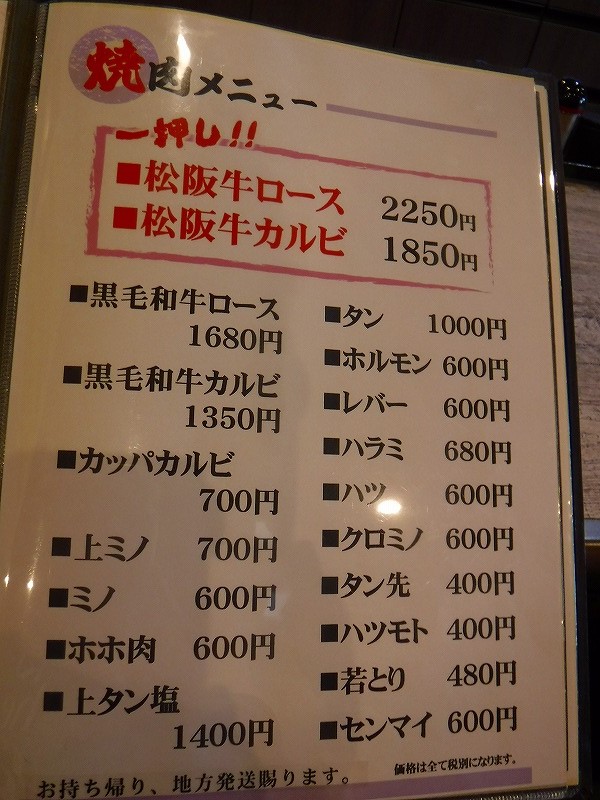 焼肉メニュー
一押し!!
■松阪牛ロース 2250円
■松阪牛カルビ 1850円
■黒毛和牛ロース
1680円
■黒毛和牛カルビ
1350円
■カッパカルビ
700円
■上ミノ 700円
■ミノ 600円
■ホホ肉 600円
■上タン塩
1400円
■タン 1000円
■ホルモン 600円
■レバー 600円
■ハラミ 680円
■ハツ 600円
■クロミノ 600円
■タン先 400円
■ハツモト 400円
■若とり 480円
■センマイ 600円
価格は全て税別になります。
お持ち帰り、地方発送賜ります。